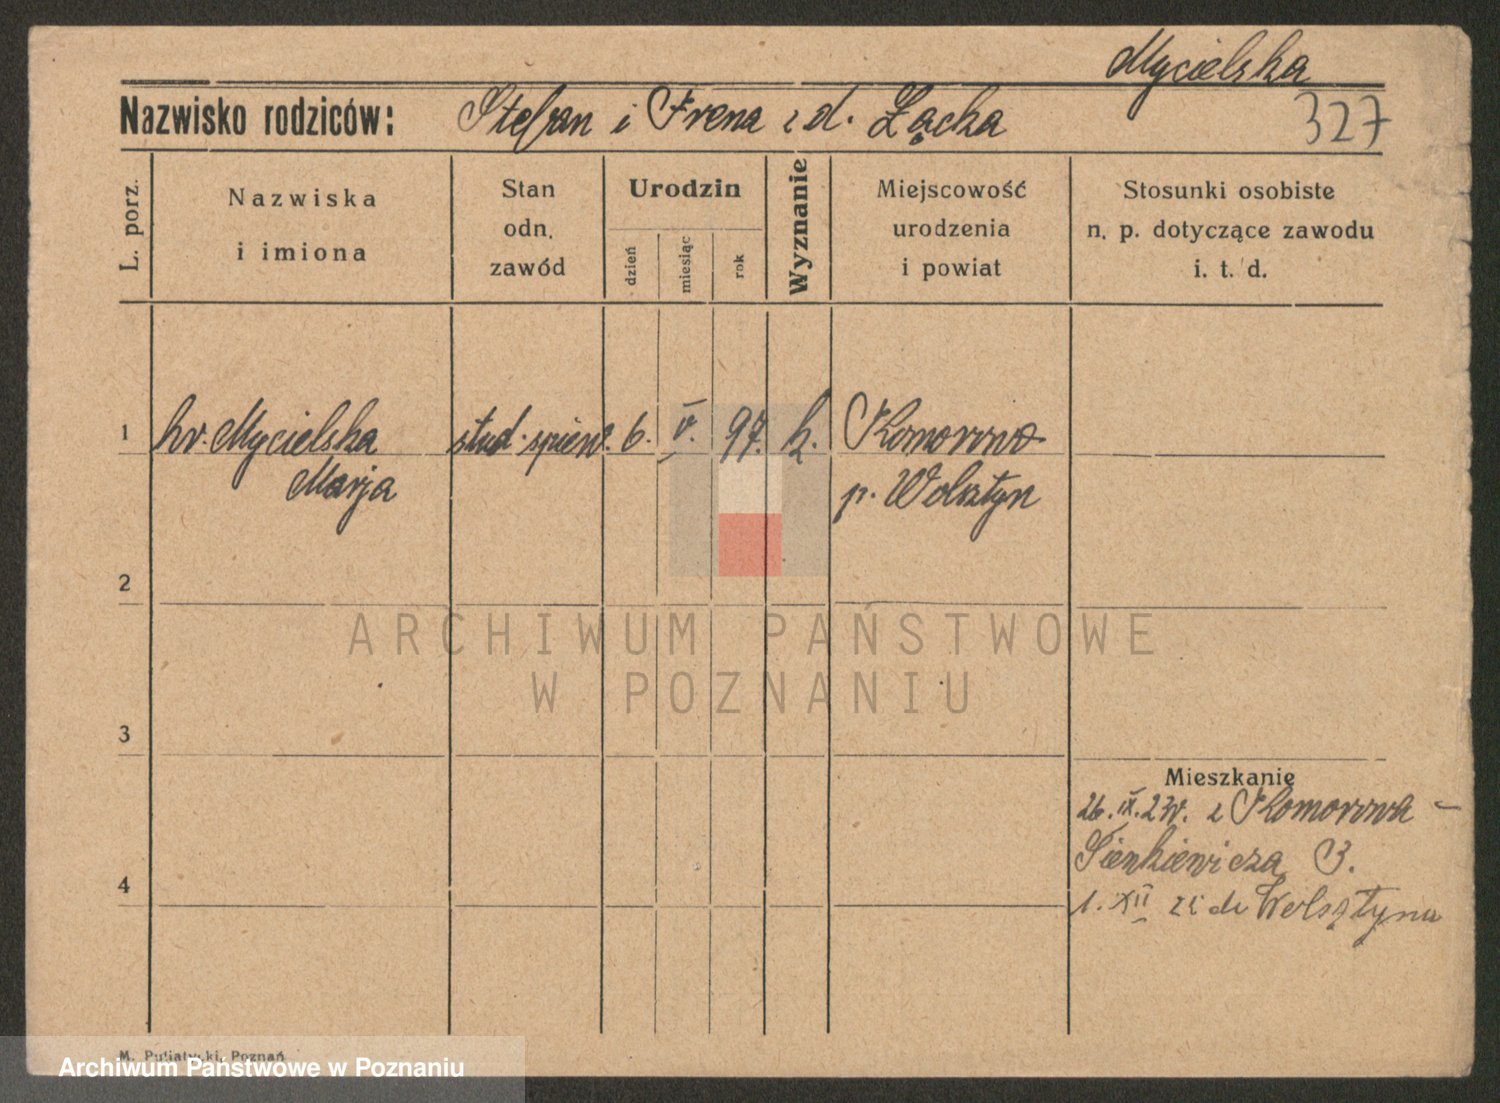 Mycielska
Nazwisko rodziców: Stefan i Irena z d. Łącka
327
L. porz.
Nazwiska
i imiona
Stan
odn.
zawód
Urodzin
dzień
miesiąc
rok
Wyznanie
Miejscowość
urodzenia
i powiat
Stosunki osobiste
n. p. dotyczące zawodu
i. t. d.
1 hr. Mycielska stud. śpiew. 6. V. 97. k. Komorowo
Marja p. Wolsztyn
2
ARCHIWUM PAŃSTWOWE
W POZNANIU
3
Mieszkanie
26. IX. 23r. z Komorowa -
Sienkiewicza 3.
4
1. XII do Wolsztyna
M. Putiatycki, Poznań
Archiwum Państwowe w Poznaniu